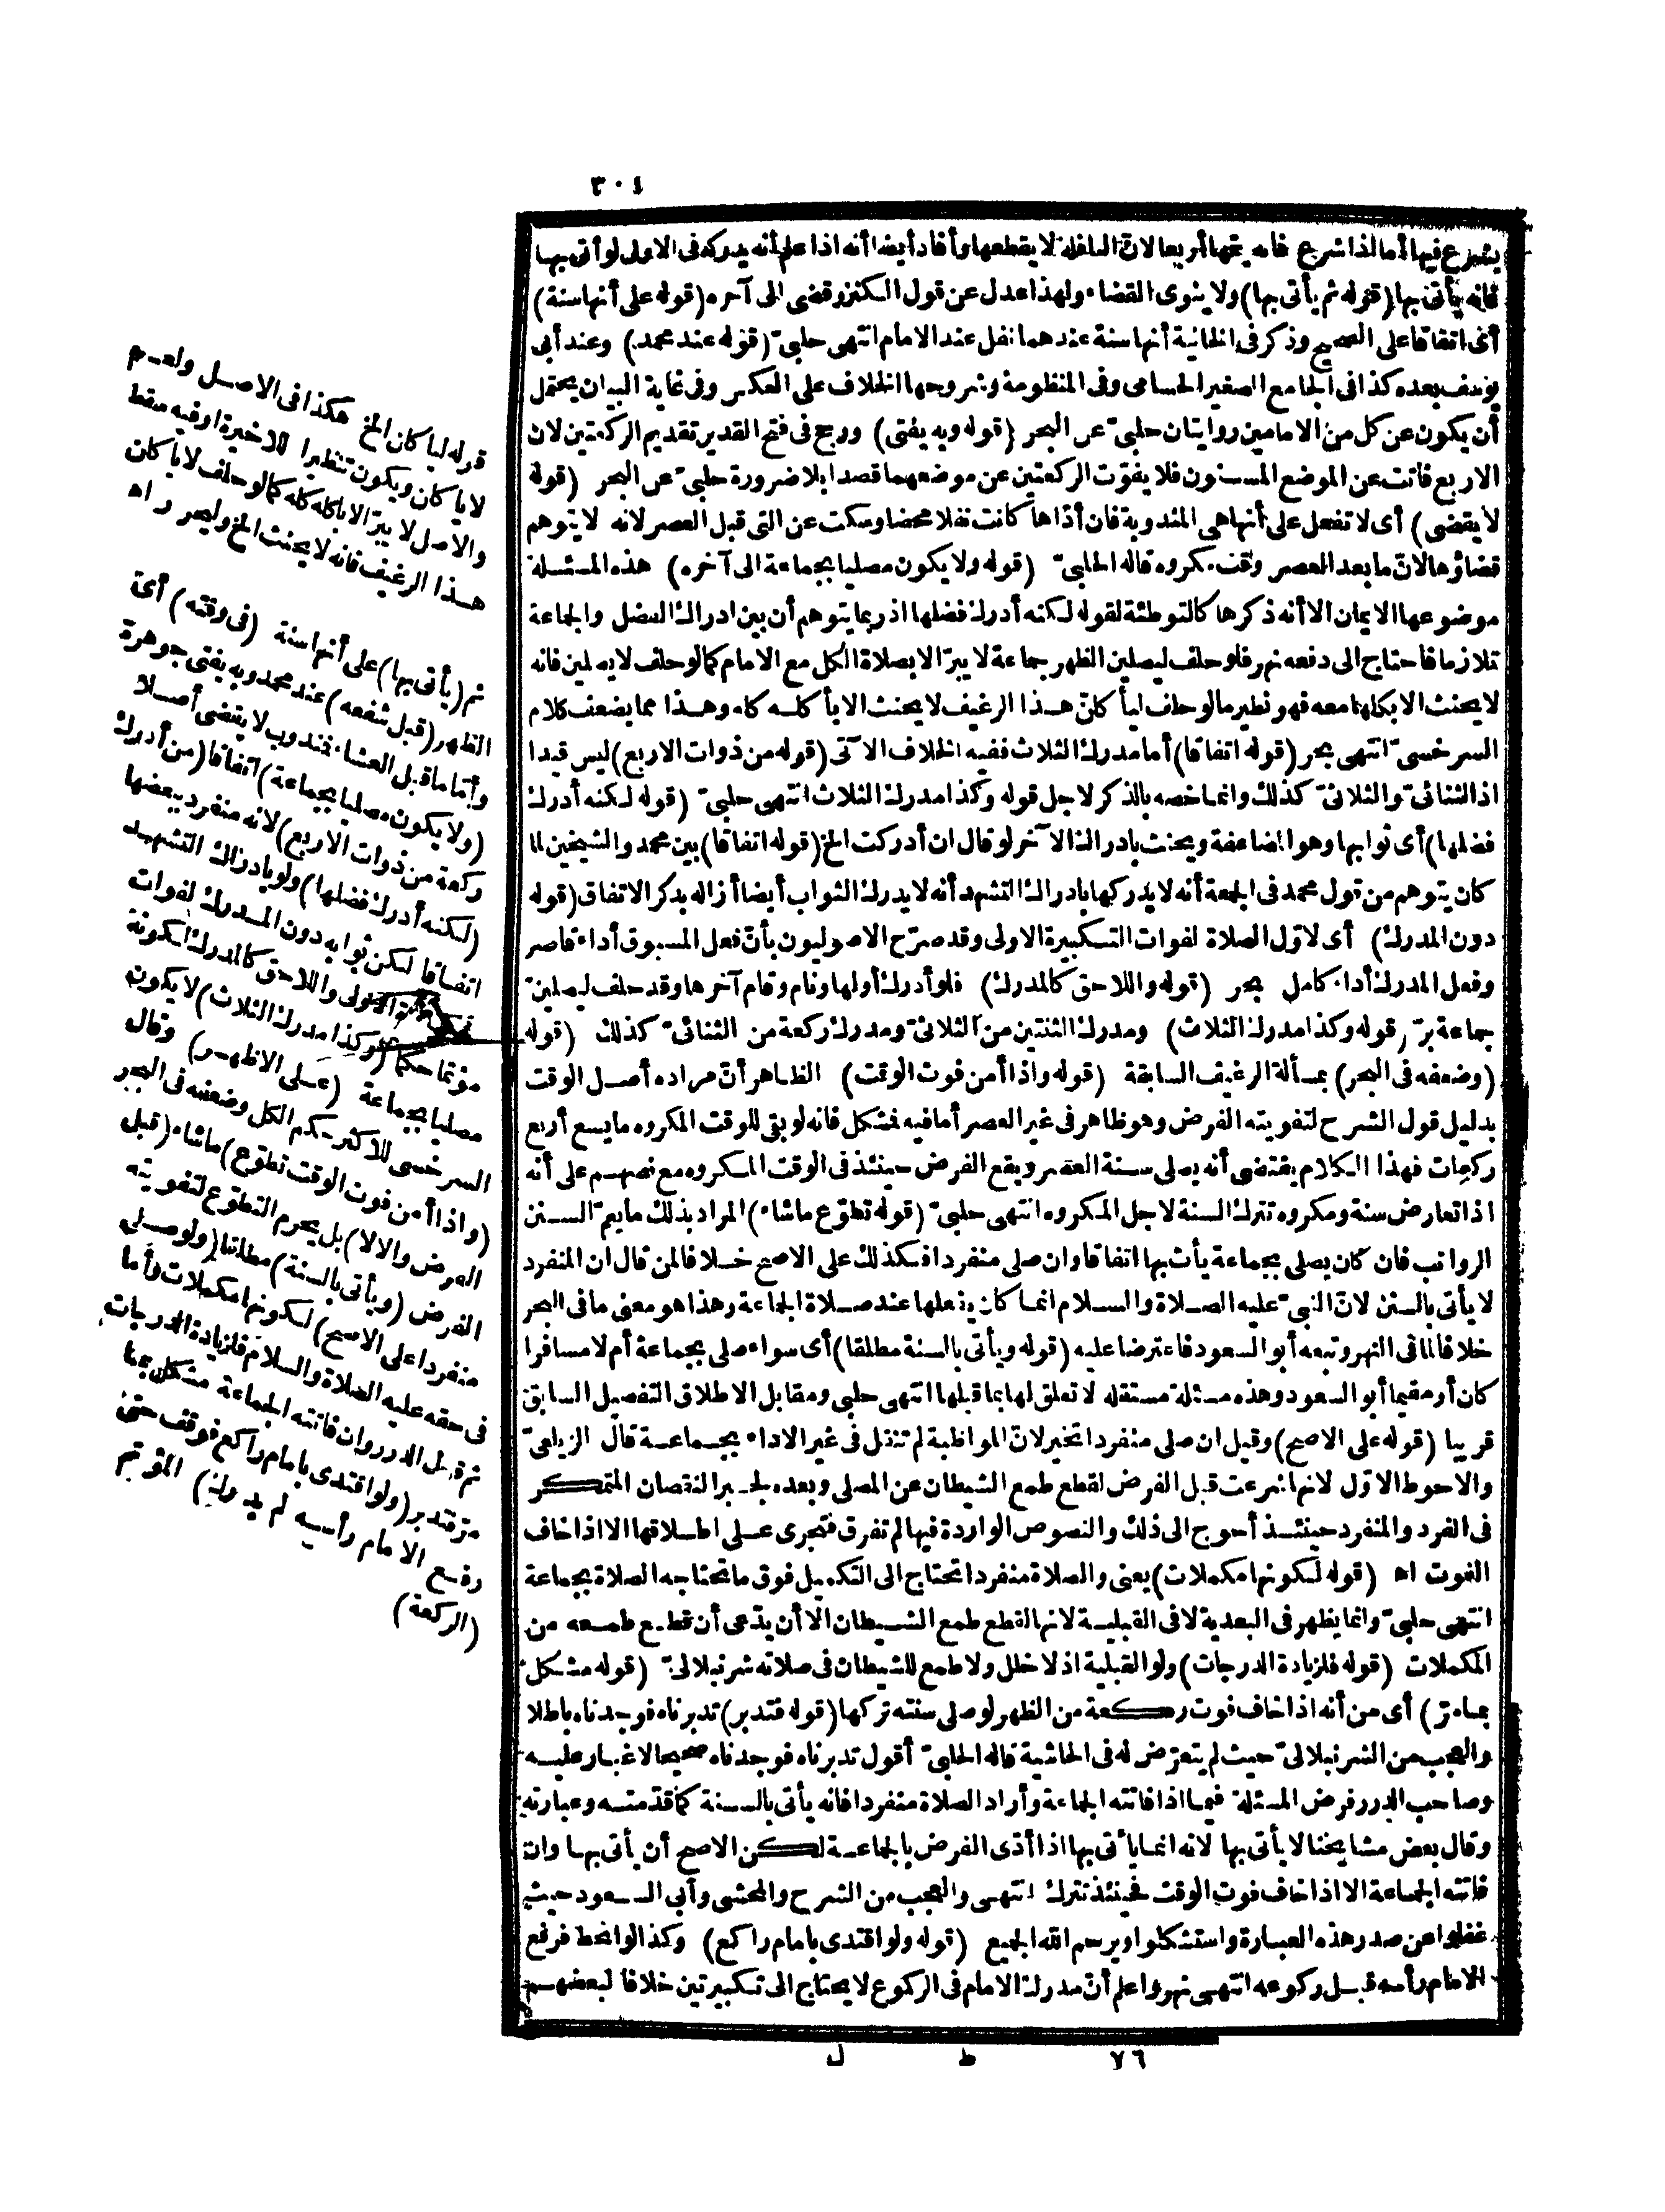 ٣٠١
يشرع فيها أما اذا شرع فانه يتمها أربعا لانّ النافلة لا يقطعها وأفاد أيضا أنه اذا علم أنه يدركه فى الاولى لو أتى بها
فانه يأتى بها (قوله ثم يأتى بها) ولا ينوى القضاء ولهذا عدل عن قول الكنز وقضى الى آخره (قوله على أنها سنة)
أى اتفاقا على الصحيح وذكر فى الخانية أنها سنة عندهما نفل عند الامام انتهى حلبىّ (قوله عند محمد) وعند أبى
يوسف بعده كذا فى الجامع الصغير الحسامى وفى المنظومة وشروحها الخلاف على العكس وفى غاية البيان يحتمل
أن يكون عن كل من الامامين روايتان حلبىّ عن البحر (قوله وبه يفتى) ورجح فى فتح القدير تقديم الركعتين لان
الاربع فاتت عن الموضع المسنون فلا يفوّت الركعتين عن موضعهما قصدا بلا ضرورة حلبىّ عن البحر (قوله
لا يقضى) أى لا تفعل على أنها هى المندوبة فان أدّاها كانت نفلا محضا وسكت عن التى قبل العصر لانه لا يتوهم
قضاؤها لانّ ما بعد العصر وقت مكروه قاله الحلبىّ (قوله ولا يكون مصليا بجماعة الى آخره) هذه المسئلة
موضوعها الايمان الا أنه ذكرها كالتوطئة لقوله لكنه أدرك فضلها اذ ربما يتوهم أن بين ادراك الفضل والجماعة
تلازما فاحتاج الى دفعه نهر فلو حلف ليصلين الظهر جماعة لا يبرّ الا بصلاة الكل مع الامام كما لو حلف لا يصلين فانه
لا يحنث الا بكلها معه فهو نظير ما لو حلف ليأكلنّ هذا الرغيف لا يحنث الا بأكله كله وهذا مما يضعف كلام
السرخسىّ انتهى بحر (قوله اتفاقا) أما مدرك الثلاث ففيه الخلاف الآتى (قوله من ذوات الاربع) ليس قيدا
اذ الثنائىّ والثلاثىّ كذلك وانما خصه بالذكر لاجل قوله وكذا مدرك الثلاث انتهى حلبىّ (قوله لكنه أدرك
فضلها) أى ثوابها وهو المضاعفة ويحنث بادراك الآخر لو قال ان أدركت الخ (قوله اتفاقا) بين محمد والشيخين لما
كان يتوهم من قول محمد فى الجمعة أنه لا يدركها بادراك التشهد أنه لا يدرك الثواب أيضا أزاله بذكر الاتفاق (قوله
دون المدرك) أى لاوّل الصلاة لفوات التكبيرة الاولى وقد صرّح الاصوليون بأنّ فعل المسبوق أداء قاصر
وفعل المدرك أداء كامل بحر (قوله واللاحق كالمدرك) فلو أدرك أولها ونام وقام آخرها وقد حلف ليصلينّ
جماعة برّ (قوله وكذا مدرك الثلاث) ومدرك الثنتين من الثلاثىّ ومدرك ركعة من الثنائىّ كذلك (قوله
(وضعفه فى البحر) بمسألة الرغيف السابقة (قوله واذا أمن فوت الوقت) الظاهر أنّ مراده أصل الوقت
بدليل قول الشرح لتفويته الفرض وهو ظاهر فى غير العصر أما فيه فمشكل فانه لو بقى للوقت المكروه ما يسع أربع
ركعات فهذا الكلام يقتضى أنه يصلى سنة العصر ويقع الفرض حينئذ فى الوقت المكروه مع نصهم على أنه
اذا تعارض سنة ومكروه تترك السنة لاجل المكروه انتهى حلبىّ (قوله تطوّع ما شاء) المراد بذلك ما يعمّ السنن
الرواتب فان كان يصلى بجماعة يأت بها اتفاقا وان صلى منفردا فكذلك على الاصح خلافا لمن قال ان المنفرد
لا يأتى بالسنن لانّ النبىّ عليه الصلاة والسلام انما كان يفعلها عند صلاة الجماعة وهذا هو معنى ما فى البحر
خلافا لما فى النهر وتبعه أبو السعود فاعترضا عليه (قوله ويأتى بالسنة مطلقا) أى سواء صلى بجماعة أم لا مسافرا
كان أو مقيما أبو السعود وهذه مسئلة مستقله لا تعلق لها بما قبلها انتهى حلبى ومقابل الاطلاق التفصيل السابق
قريبا (قوله على الاصح) وقيل ان صلى منفردا تخير لانّ المواظبة لم تنقل فى غير الاداء بجماعة قال الزيلعىّ
والاحوط الاوّل لانها شرعت قبل الفرض لقطع طمع الشيطان عن المصلى وبعده لجبر النقصان المتمكن
فى الفرد والمنفرد حينئذ أحوج الى ذلك والنصوص الواردة فيها لم تفرق فتجرى على اطلاقها الا اذا خاف
الفوت اه (قوله لكونها مكملات) يعنى والصلاة منفردا تحتاج الى التكميل فوق ما تحتاجه الصلاة بجماعة
انتهى حلبىّ وانما يظهر فى البعدية لا فى القبلية لانها لقطع طمع الشيطان الا أن يدّعى أن قطع طمعه من
المكملات (قوله فلزيادة الدرجات) ولو القبلية اذ لا خلل ولا طمع للشيطان فى صلاته شرنبلالىّ (قوله مشكل
بما مرّ) أى من أنه اذا خاف فوت ركعة من الظهر لو صلى سنته تركها (قوله فتدبر) تدبرناه فوجدناه باطلا
والعجب من الشرنبلالىّ حيث لم يتعرّض له فى الحاشية قاله الحلبىّ أقول تدبرناه فوجدناه صحيحا لا غبار عليه
وصاحب الدرر فرض المسئلة فيما اذا فاتته الجماعة وأراد الصلاة منفردا فانه يأتى بالسنة كما قدّمته وعبارته
وقال بعض مشايخنا لا يأتى بها لانه انما يأتى بها اذا أدّى الفرض بالجماعة لكن الاصح أن يأتى بها وان
فاتته الجماعة الا اذا خاف فوت الوقت فحينئذ تترك انتهى والعجب من الشرح والمحشى وأبى السعود حيث
غفلوا عن صدر هذه العبارة واستشكلوا ويرحم الله الجميع (قوله ولو اقتدى بامام راكع) وكذا لو انحط فرفع
الامام رأسه قبل ركوعه انتهى نهر واعلم أنّ مدرك الامام فى الركوع لا يحتاج الى تكبيرتين خلافا لبعضهم
قوله ليأكلن الخ هكذا فى الاصل ولعله
لا يأكلن ويكون تنظيرا للاخيرة أو فيه سقط
والاصل لا يبرّ الا بأكله كله كما لو حلف لا يأكلن
هذا الرغيف فانه لا يحنث الخ وليحرر اه
ثم (يأتى بها) على أنها سنة (فى وقته) أى
الظهر (قبل شفعه) عند محمد وبه يفتى جوهرة
وأمّا ما قبل العشاء فمندوب لا يقضى أصلا
(ولا يكون مصليا بجماعة) اتفاقا (من أدرك
ركعة من ذوات الاربع) لانه منفرد ببعضها
(لكنه أدرك فضلها) ولو بادراك التشهد
اتفاقا لكن ثوابه دون المدرك لفوات
التكبيرة الاولى واللاحق كالمدرك لكونه
مؤتما حكما (وكذا مدرك الثلاث) لا يكون
مصليا بجماعة (على الاظهر) وقال
السرخسى للاكثر حكم الكل وضعفه فى البحر
(واذا أمن فوت الوقت تطوّع) ما شاء (قبل
الفرض والا لا) بل يحرم التطوع لتفويته
الفرض (ويأتى بالسنة) مطلقا (ولو صلى
منفردا على الاصح) لكونها مكملات وأما
فى حقه عليه الصلاة والسلام فلزيادة الدرجات
ثم قول الدرر وان فاتته الجماعة مشكل بما
مرّ فتدبر (ولو اقتدى بامام راكع فوقف حتى
رفع الامام رأسه لم يدرك) المؤتم
(الركعة)
٧٦ ط ل